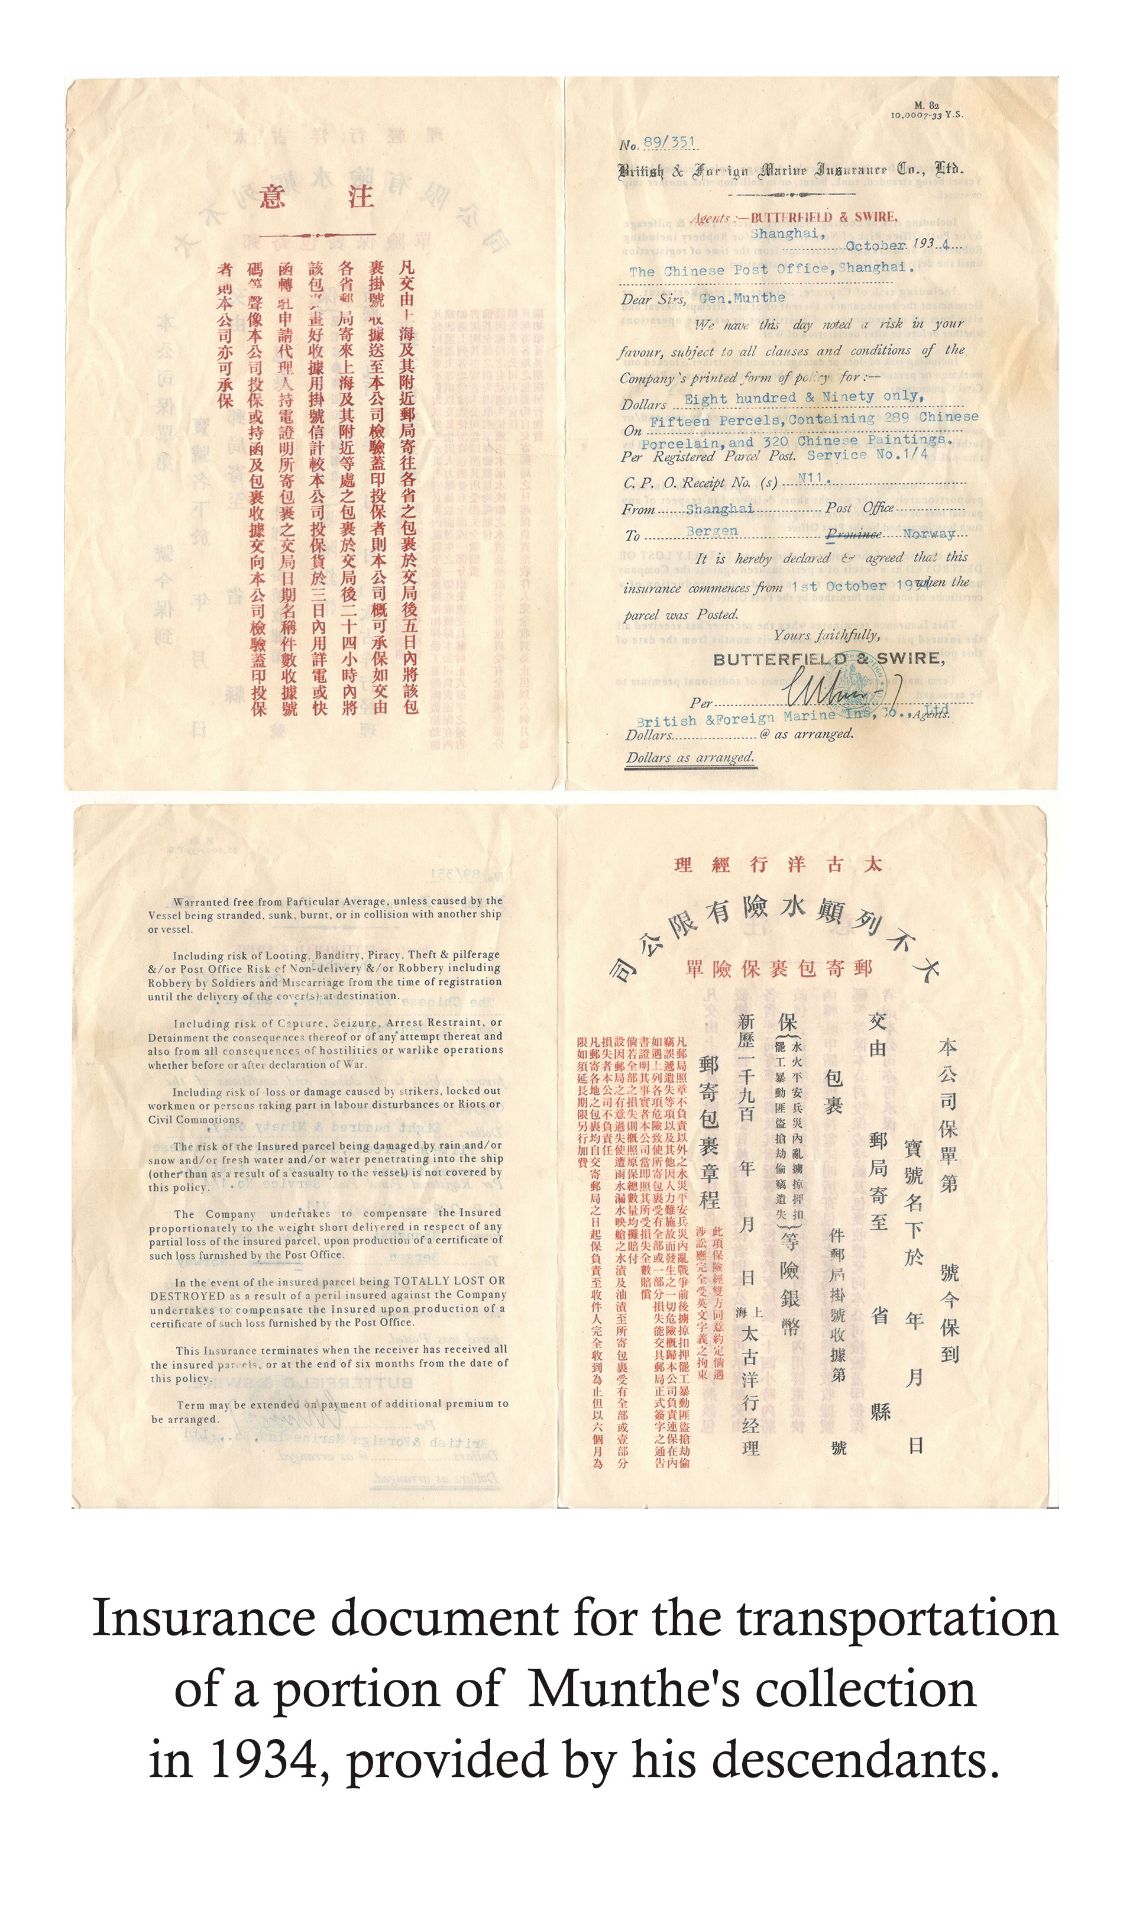 意 注
凡交由上海及其附近郵局寄往各省之包裹於交局後五日內將該包
裹掛號收據送至本公司檢驗蓋印投保者則本公司概可承保如交由
各省郵局寄來上海及其附近等處之包裹於交局後二十四小時內將
該包裹畫好收據用掛號信計較本公司投保貨於三日內用詳電或快
函轉駐申請代理人持電證明所寄包裹之交局日期名稱件數收據號
碼等聲像本公司投保或持函及包裹收據交向本公司檢驗蓋印投保
者則本公司亦可承保
M. 82
10,0007-33 Y.S.
No. 89/351
British & Foreign Marine Insurance Co., Ltd.
Agents :—BUTTERFIELD & SWIRE,
Shanghai,
October 1934
The Chinese Post Office, Shanghai.
Dear Sirs, Gen.Munthe
We have this day noted a risk in your
favour, subject to all clauses and conditions of the
Company's printed form of policy for :—
Dollars Eight hundred & Ninety only,
On Fifteen Percels, Containing 289 Chinese
Porcelain, and 320 Chinese Paintings.
Per Registered Parcel Post. Service No.1/4
C. P. O. Receipt No. (s) N11.
From Shanghai Post Office
To Bergen Province Norway
It is hereby declared & agreed that this
insurance commences from 1st October 1934 when the
parcel was Posted.
Yours faithfully,
BUTTERFIELD & SWIRE,
Per
British &Foreign Marine Ins, Co., Ltd Agents.
Dollars @ as arranged.
Dollars as arranged.
Warranted free from Particular Average, unless caused by the
Vessel being stranded, sunk, burnt, or in collision with another ship
or vessel.
Including risk of Looting, Banditry, Piracy, Theft & pilferage
&/or Post Office Risk of Non-delivery &/or Robbery including
Robbery by Soldiers and Miscarriage from the time of registration
until the delivery of the cover(s) at destination.
Including risk of Capture, Seizure, Arrest Restraint, or
Detainment the consequences thereof or of any attempt thereat and
also from all consequences of hostilities or warlike operations
whether before or after declaration of War.
Including risk of loss or damage caused by strikers, locked out
workmen or persons taking part in labour disturbances or Riots or
Civil Commotions.
The risk of the Insured parcel being damaged by rain and/or
snow and/or fresh water and/or water penetrating into the ship
(other than as a result of a casualty to the vessel) is not covered by
this policy.
The Company undertakes to compensate the Insured
proportionately to the weight short delivered in respect of any
partial loss of the insured parcel, upon production of a certificate of
such loss furnished by the Post Office.
In the event of the insured parcel being TOTALLY LOST OR
DESTROYED as a result of a peril insured against the Company
undertakes to compensate the Insured upon production of a
certificate of such loss furnished by the Post Office.
This Insurance terminates when the receiver has received all
the insured parcels, or at the end of six months from the date of
this policy.
Term may be extended on payment of additional premium to
be arranged.
理 經 行 洋 古 太
司公限有險水顚列不大
單險保裹包寄郵
本公司保單第 號今保到
寶號名下於 年 月 日
交由 郵局寄至 省 縣
包裹 件郵局掛號收據第 號
保 水火平安兵災內亂擄掠押扣
罷工暴動匪盜搶劫偷竊遺失 等險銀幣
新歷一千九百 年 月 日 上海 太古洋行经理
郵寄包裹章程 此項保險經雙方同意約定倘遇
涉訟應完全受英文字義之拘束
凡郵局照章不負責以外之水災平安兵災內亂戰爭前後擄掠扣押罷工暴動匪盜搶劫偷
竊誤遞遺失等項以及其他因人力難施故而發生之一切危險概歸本公司負責連保在內
如遇上列各項危險致使所寄包裹受有全部或一部分損失能交具郵局正式簽字之通告
書證明其事實者本公司當即照其所受損失全數賠償
倘若全部之損失則概照原保總數量均攤賠付
設因郵局之有意過失使遭雨水漏水映艙之水漬及油漬至所寄包裹受有全部或壹部分
損失者本公司不負責任
凡郵寄各地之包裹均自交寄郵局之日起保負責至收件人完全收到為止但以六個月為
限如須延長期限另行加費
Insurance document for the transportation
of a portion of Munthe's collection
in 1934, provided by his descendants.